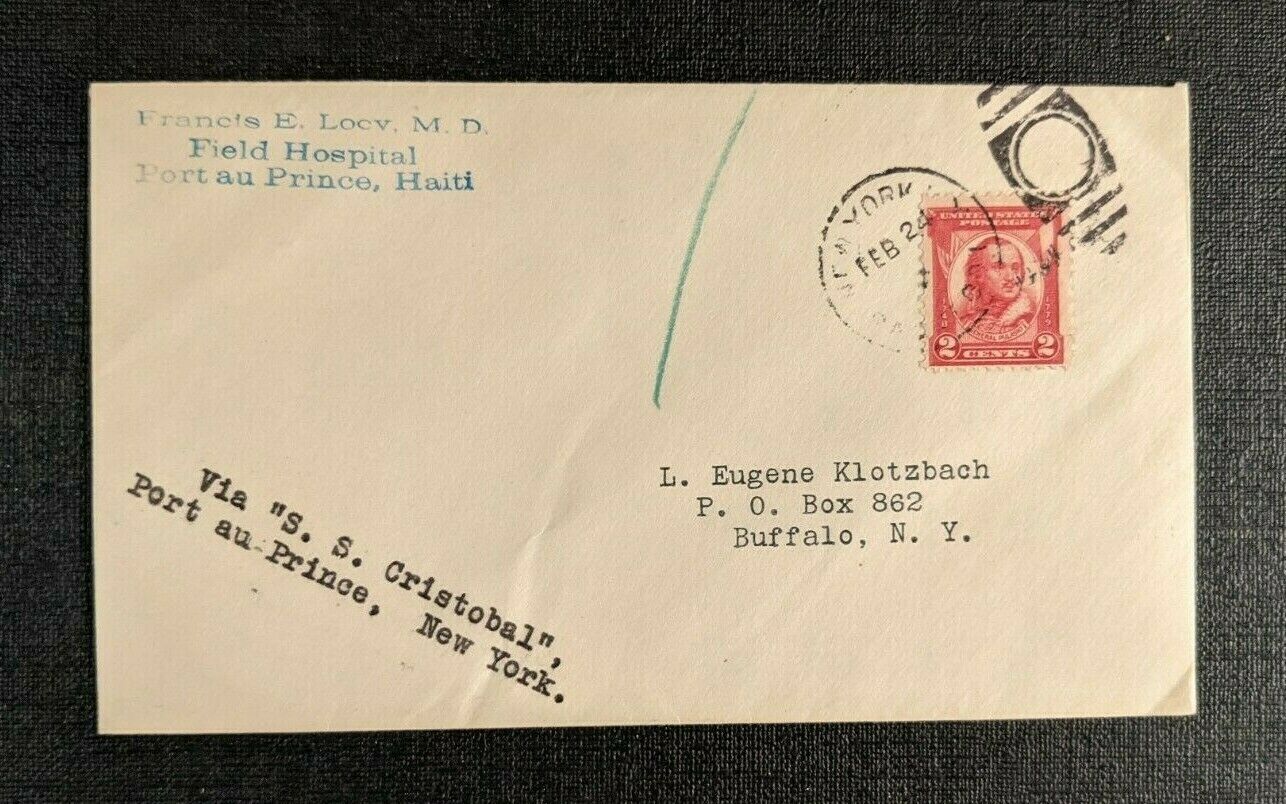 Francis E. Locy, M. D.
Field Hospital
Port au Prince, Haiti
NEW YORK
FEB 24
1931
UNITED STATES
POSTAGE
1748
1779
GENERAL PULASKI
2 CENTS 2
L. Eugene Klotzbach
P. O. Box 862
Buffalo, N. Y.
Via "S. S. Cristobal",
Port au-Prince, New York.